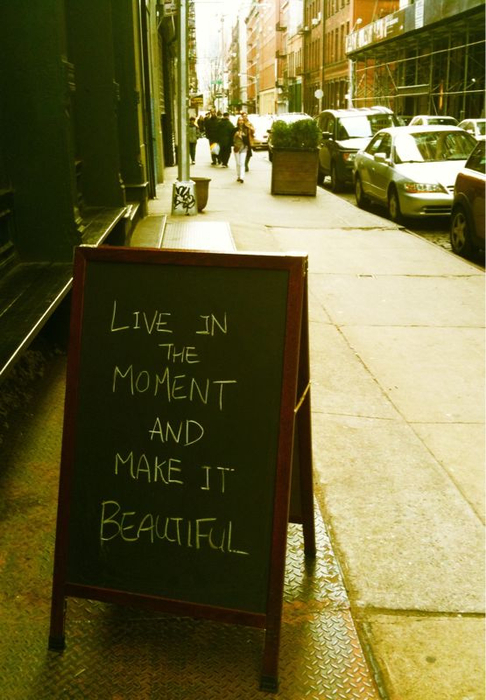 LIVE IN
THE
MOMENT
AND
MAKE IT
BEAUTIFUL